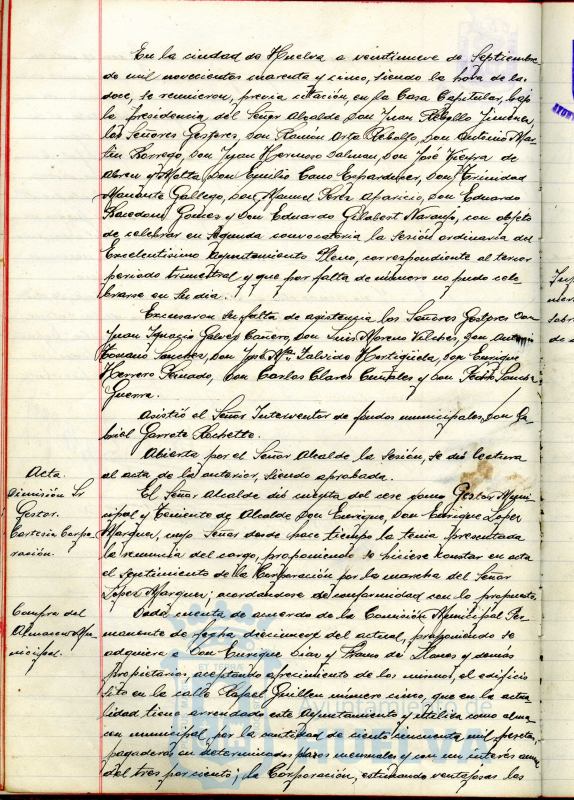 En la ciudad de Huelva a veintinueve de Septiembre
de mil novecientos cuarenta y cinco, siendo la hora de las
doce, se reunieron, previa citación, en la Casa Capitular, bajo
la presidencia del Señor Alcalde Don Juan Rebollo Jiménez,
los Señores Gestores, Don Ramón Arta Rebollo, Don Antonio Mar-
tín Borrego, Don Juan Hermoso Dalman, Don José Vieyra de
Abreu y Motta, Don Emilio Cano Don Trinidad
Gallego, Don Manuel Pérez Aparicio, Don Eduardo
Gomes y Don Eduardo Gilabert Naranjo, con objeto
de celebrar en segunda convocatoria la sesión ordinaria del
Excelentísimo Ayuntamiento Pleno, correspondiente al tercer
periodo trimestral y que por falta de número no pudo cele-
brarse en su día.
Excusaron su falta de asistencia los Señores Gestores Don
Juan Ignacio Galvez Cañero, Don Luis Moreno Vilches, Don Antonio
Toscano Sanchez, Don José Mª. Salvide Hortigüela, Don Enrique
Herrero Don Carlos Clares y Don Pedro Sancha
Guerra.
Asistió el Señor Interventor de fondos municipales, Don Ga-
briel Garrote Rochette.
Abierta por el Señor Alcalde la sesión, se dió lectura
Acta.
al acta de la anterior, siendo aprobada.
Dimisión Sr
Gestor.
Cortesía Corpo-
ración.
El Señor Alcalde dió cuenta del cese como Gestor Muni-
cipal y Teniente de Alcalde Don Enrique, Don Enrique Lopez
Marquez, cuyo Señor desde hace tiempo la tenia presentada
la renuncia del cargo, proponiendo se hiciese constar en acta
el sentimiento de la Corporación por la marcha del Señor
Lopez Marquez; acordandose de conformidad con lo propuesto.
Compra del
Almacen Mu-
nicipal.
Dada cuenta de acuerdo de la Comisión Municipal Per-
manente de fecha diecinueve del actual, proponiendo se
adquiera a Don Enrique Diaz y Franco de Llanos y demás
propietarios, aceptando ofrecimiento de los mismos, el edificio
sito en la calle Rafael Guillen número cinco, que en la actua-
lidad tiene arrendado este Ayuntamiento y utiliza como alma-
cen municipal, por la cantidad de ciento cincuenta mil pesetas,
pagaderas en determinados plazos mensuales y con un interés anual
del tres por ciento; la Corporación, estimando ventajosas las
ET TERRAE
Ayuntamiento de
HUELVA